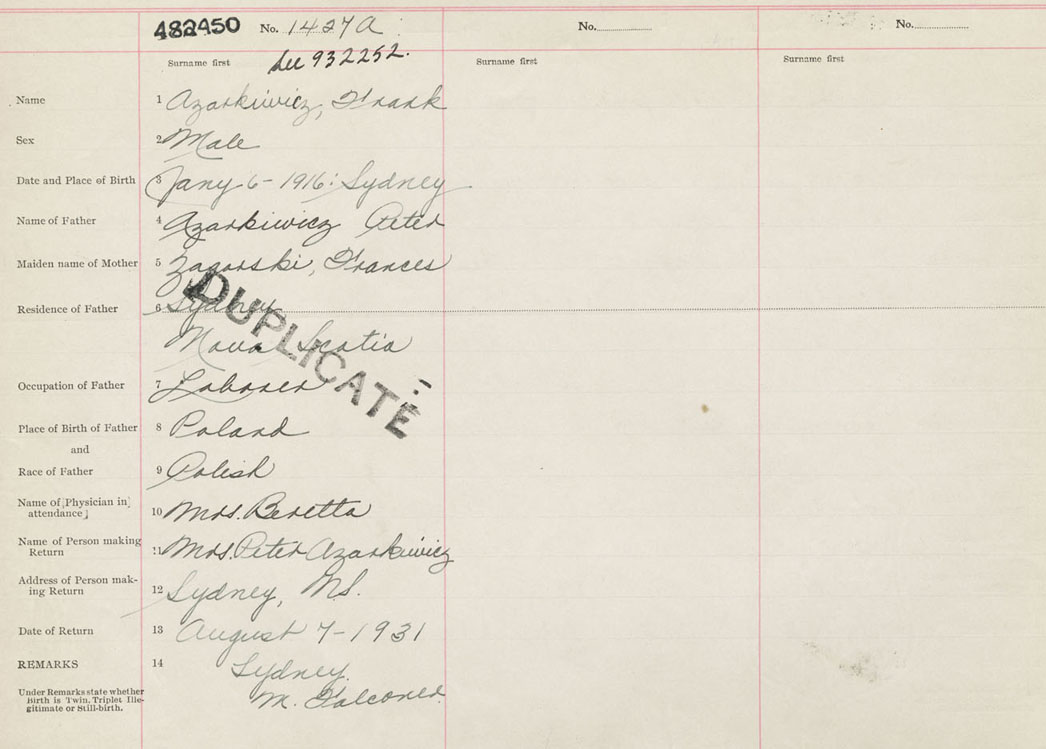 482450 No. 1427A No. No.
Surname first See 932252. Surname first Surname first
Name 1 Azarkiwicz, Frank
Sex 2 Male
Date and Place of Birth 3 Jany 6 - 1916: Sydney
Name of Father 4 Azarkiwicz Peter
Maiden name of Mother 5 Zagorski, Frances
Residence of Father 6 Sydney
Nova Scotia
DUPLICATE
Occupation of Father 7 Laborer
Place of Birth of Father 8 Poland
and
Race of Father 9 Polish
Name of [Physician in
attendance] 10 Mrs. Beretta
Name of Person making
Return 11 Mrs. Peter Azarkiwicz
Address of Person mak-
ing Return 12 Sydney, NS.
Date of Return 13 August 7 - 1931
REMARKS 14 Sydney.
Under Remarks state whether
Birth is Twin, Triplet Ille-
gitimate or Still-birth.
M. Falconer